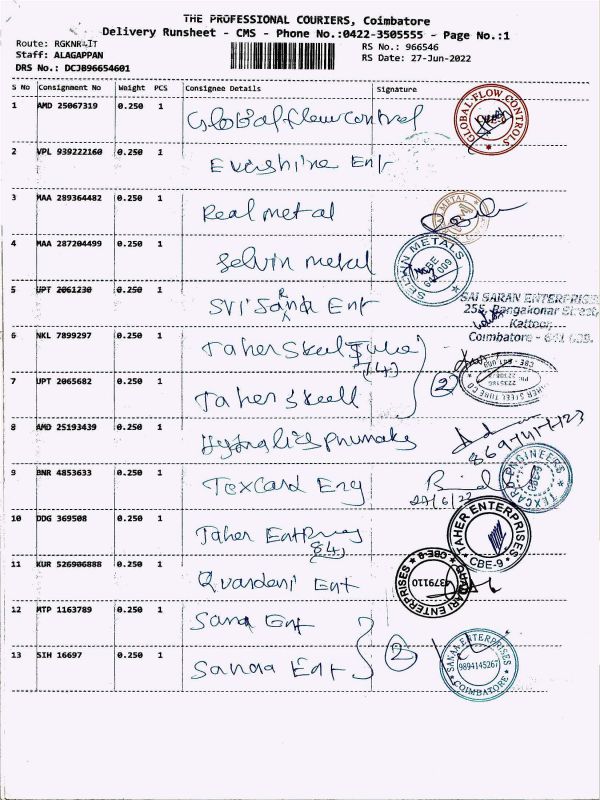 THE PROFESSIONAL COURIERS, Coimbatore
Delivery Runsheet - CMS - Phone No.:0422-3505555 - Page No.:1
Route: RGKNR-IT
Staff: ALAGAPPAN
DRS No.: DCJB96654601
RS No.: 966546
RS Date: 27-Jun-2022
S No Consignment No Weight PCS Consignee Details Signature
1 AMD 25067319 0.250 1 Global flow control
GLOBAL FLOW CONTROLS
2 VPL 939222160 0.250 1 Evershine Ent
3 MAA 289364482 0.250 1 Real metal
METAL
4 MAA 287204499 0.250 1 Selvin metal
SELWIN METALS
5 UPT 2061230 0.250 1 Sri Saran Ent
SAI SARAN ENTERPRISE
255, Rangakonar Street,
Kattoor,
Coimbatore - 641 009.
6 NKL 7899297 0.250 1 Taher Steel Tube
(84)
7 UPT 2065682 0.250 1 Taher Steell
2
TAHER STEEL TUBE CO
8 AMD 25193439 0.250 1
9 BNR 4853633 0.250 1 Texcard Eng
27/6/22
TEXCARD ENGINEERS
10 DDG 369508 0.250 1 Taher Ent
(84)
TAHER ENTERPRISES
CBE-9
11 KUR 526906888 0.250 1 Ent
ENTERPRISES
CBE-9
4379110
12 MTP 1163789 0.250 1 Sana Ent
13 SIH 16697 0.250 1 Sanaa Ent
2
SANAA ENTERPRISES
9894145267
COIMBATORE